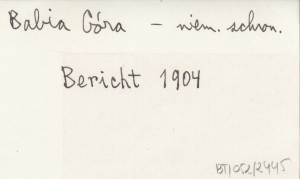 Babia Góra – niem. schron.
Bericht 1904
BT/052/2445